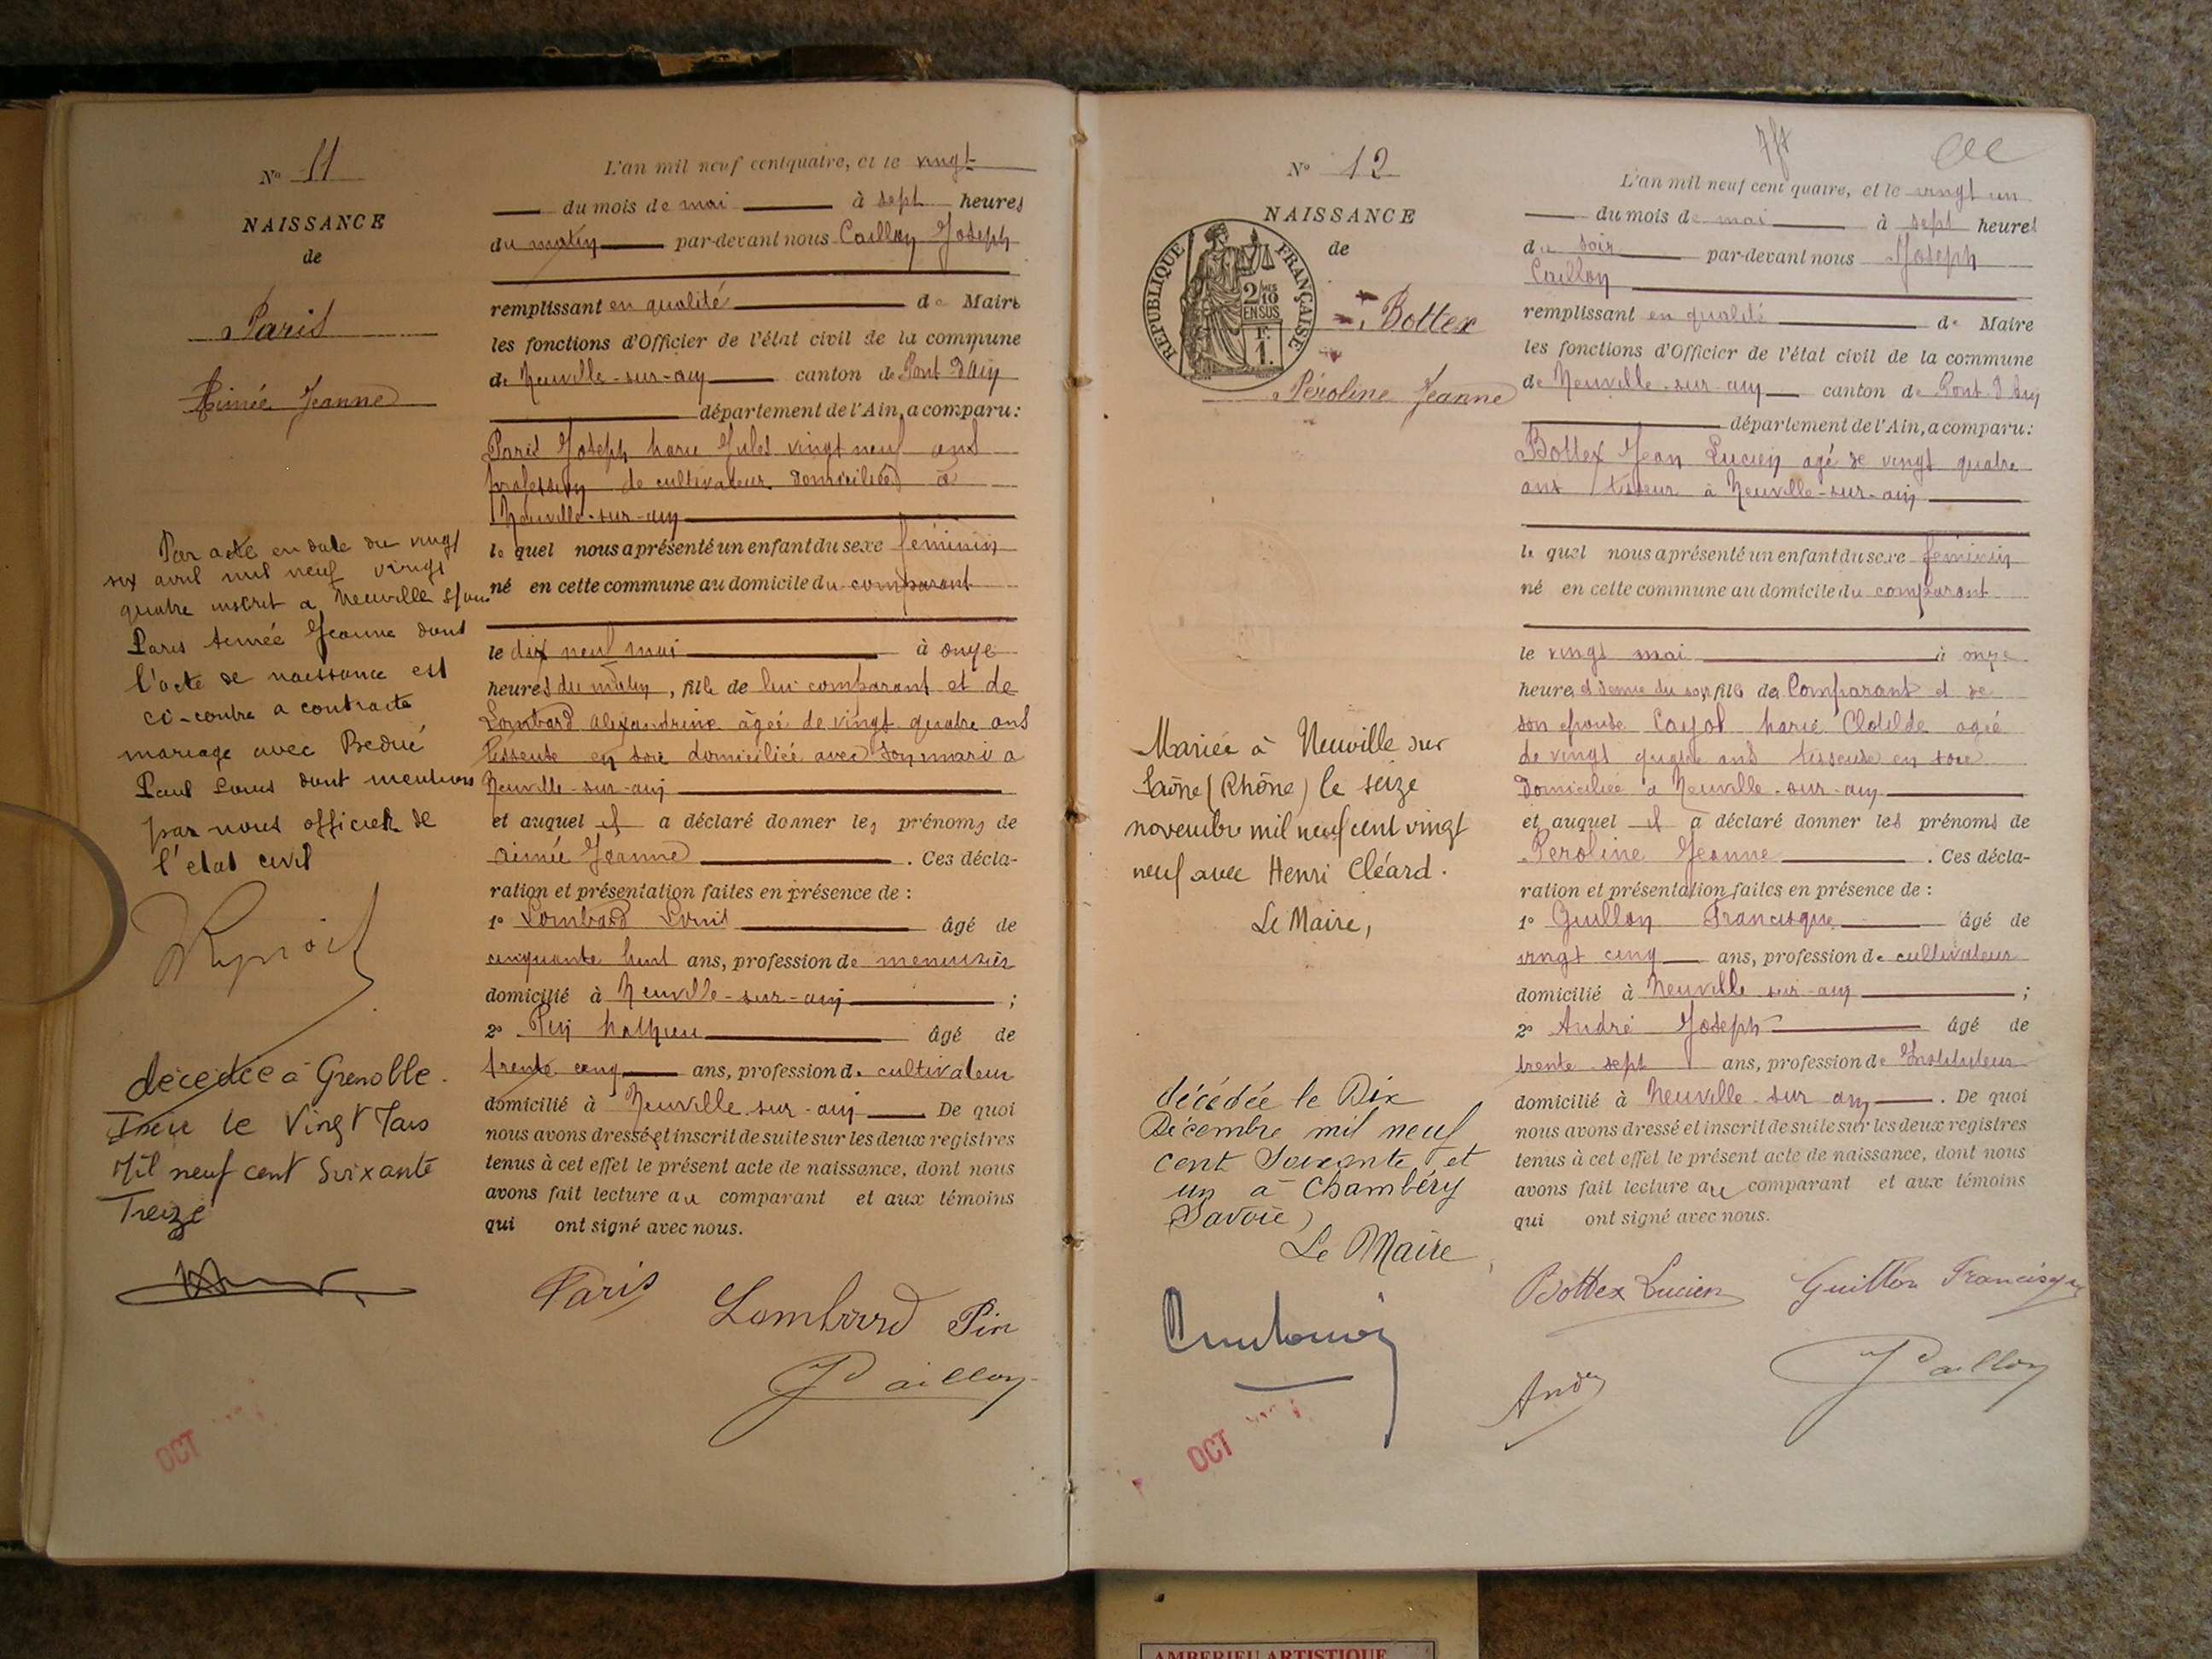 Nº 11
NAISSANCE
de
Paris
Aimée Jeanne
Par acte en date du vingt
six avril mil neuf vingt
quatre inscrit a Neuville s/ain
Paris Aimée Jeanne dont
l'acte de naissance est
ci-contre a contracté
mariage avec
Paul Louis dont mention
par nous officier de
l'etat civil
décédée à Grenoble
Isère le Vingt
Mil neuf cent Soixante
Treize
OCT
L'an mil neuf cent quatre, et le vingt
du mois de mai à sept heures
du matin par-devant nous Caillon Joseph
remplissant en qualité de Maire
les fonctions d'Officier de l'état civil de la commune
de Neuville-sur-ain canton de Pont d'Ain
département de l'Ain, a comparu:
Paris Joseph Marie Jules vingt neuf ans
profession de cultivateur domicilié à
Neuville-sur-ain
le quel nous a présenté un enfant du sexe féminin
né en cette commune au domicile du comparant
le dix neuf mai à onze
heures du matin, fille de lui comparant et de
Lombard Alexandrine âgée de vingt quatre ans
tisseuse en soie domiciliée avec son mari a
Neuville-sur-ain
et auquel il a déclaré donner les prénoms de
aimée Jeanne . Ces décla-
ration et présentation faites en présence de :
1º Lombard Louis âgé de
cinquante huit ans, profession de menuisier
domicilié à Neuville-sur-ain ;
2º Pin Mathieu âgé de
trente cinq ans, profession de cultivateur
domicilié à Neuville-sur-ain De quoi
nous avons dressé et inscrit de suite sur les deux registres
tenus à cet effet le présent acte de naissance, dont nous
avons fait lecture au comparant et aux témoins
qui ont signé avec nous.
Paris
Lombard Pin
J Caillon
Nº 12
NAISSANCE
de
REPUBLIQUE FRANÇAISE
2/10
EN SUS
F.
1.
Bottex
Péroline Jeanne
Mariée à Neuville sur
Saône (Rhône) le seize
novembre mil neuf cent vingt
neuf avec Henri Cléard.
Le Maire,
décédée le Dix
Décembre mil neuf
cent Soixante et
un à Chambéry
Savoie)
Le Maire
OCT
L'an mil neuf cent quatre, et le vingt un
du mois de mai à sept heures
du soir par-devant nous Joseph
Caillon
remplissant en qualité de Maire
les fonctions d'Officier de l'état civil de la commune
de Neuville-sur-ain canton de Pont d'Ain
département de l'Ain, a comparu:
Bottex Jean Lucien agé de vingt quatre
ans tisseur à Neuville-sur-ain
le quel nous a présenté un enfant du sexe feminin
né en cette commune au domicile du comparant
le vingt mai à onze
heures et demie du soir, fille de Comparant et de
son epouse Cayot Marie Clotilde agée
de vingt quatre ans tisseuse en soie
domiciliée à Neuville-sur-ain
et auquel il a déclaré donner les prénoms de
Peroline Jeanne . Ces décla-
ration et présentation faites en présence de :
1º Guillon Francisque âgé de
vingt cinq ans, profession de cultivateur
domicilié à Neuville sur-ain ;
2º André Joseph âgé de
trente sept ans, profession de Instituteur
domicilié à Neuville-sur ain . De quoi
nous avons dressé et inscrit de suite sur les deux registres
tenus à cet effet le présent acte de naissance, dont nous
avons fait lecture au comparant et aux témoins
qui ont signé avec nous.
Bottex Lucien Guillon Francisque
André
J Caillon
AMBERIEU ARTISTIQUE